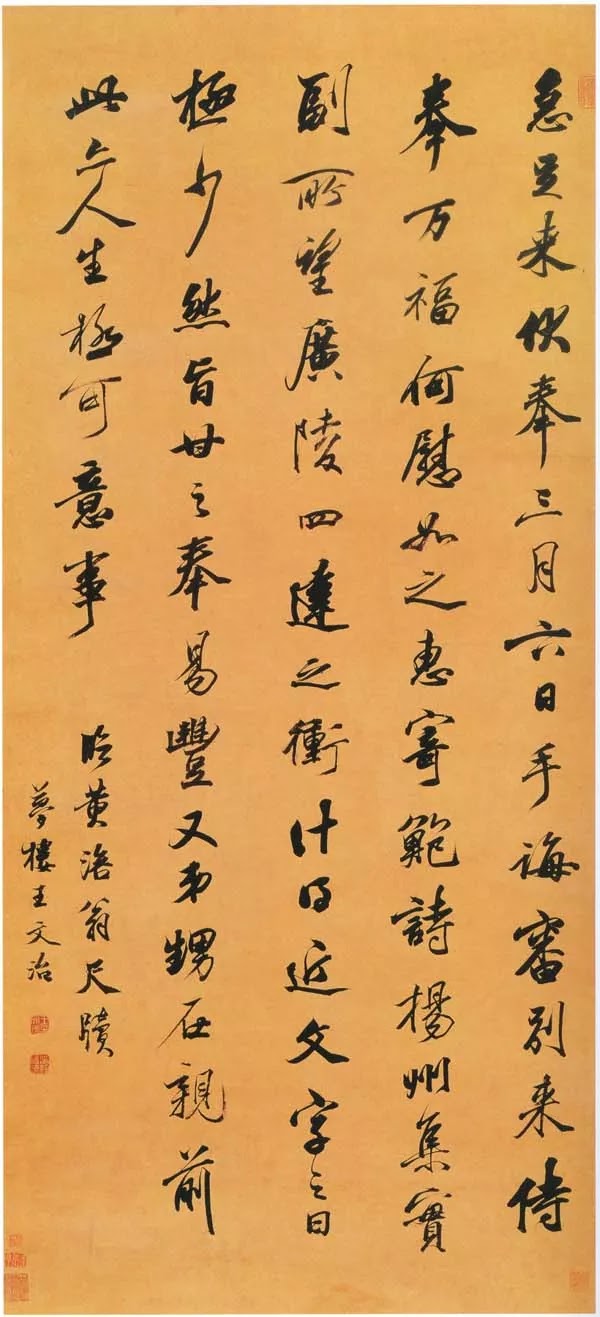 急足来伏奉三月六日手誨審別来侍
奉万福何慰如之惠寄鮑詩揚州集實
副所望廣陵四達之衝計日近文字之日
極少然旨甘之奉易豐又弟甥在親前
此亦人生極可意事
臨黄涪翁尺牘
夢樓王文治